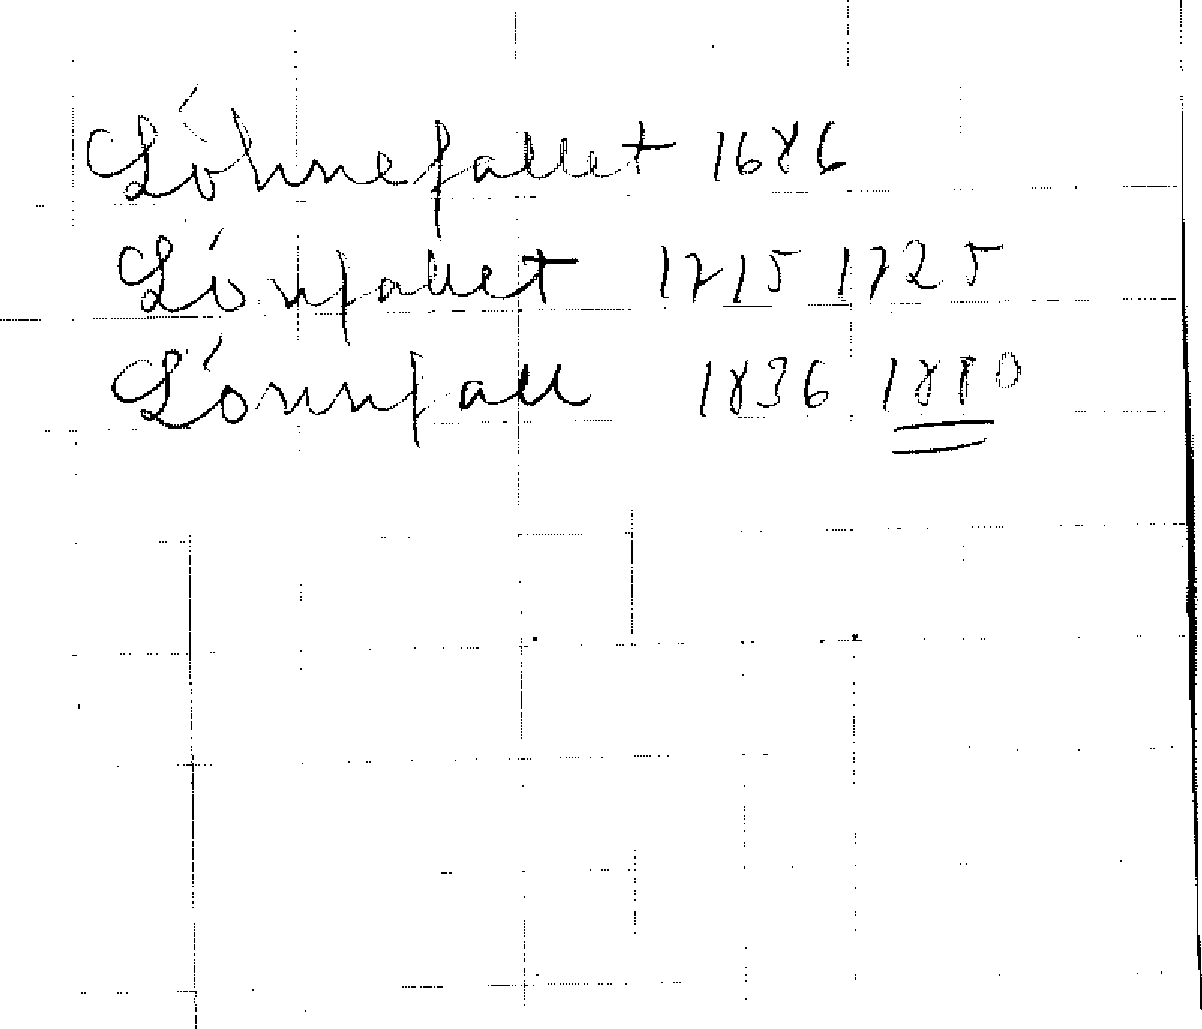 Löhnefallet 1686
Lönfallet 1715 1725
Lönnfall 1836 1880